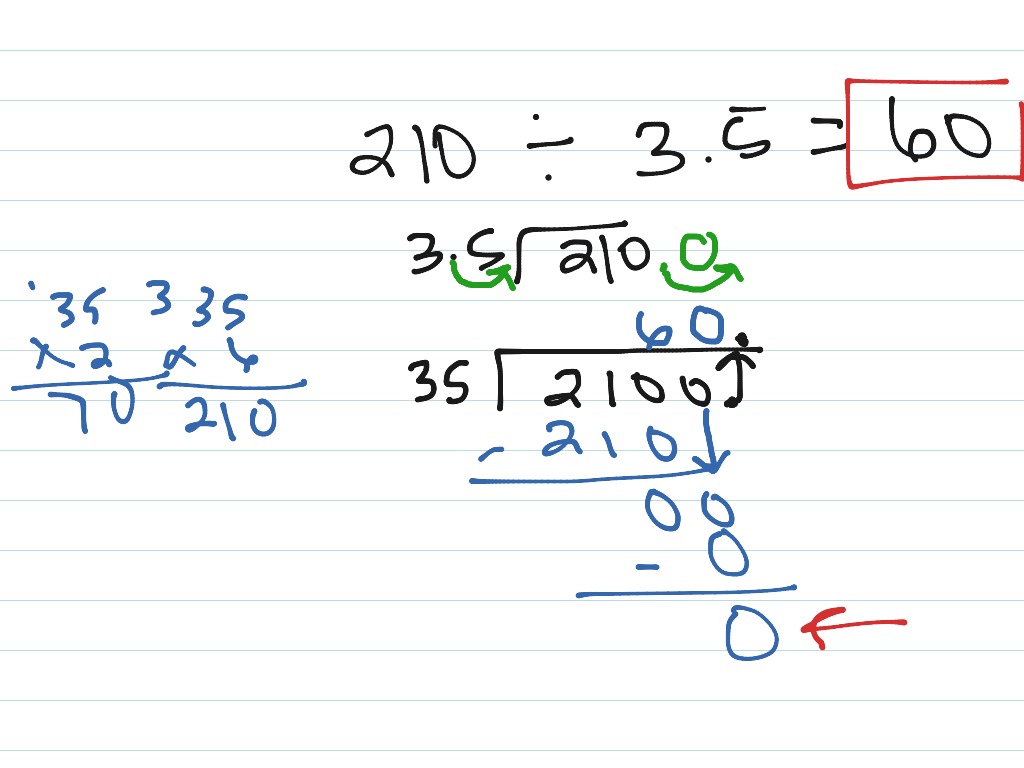 210 ÷ 3.5 = 60
3.5 210 0
35 3 35
x 2 x 6
70 210
60.
35 2100.
- 210
00
- 0
0